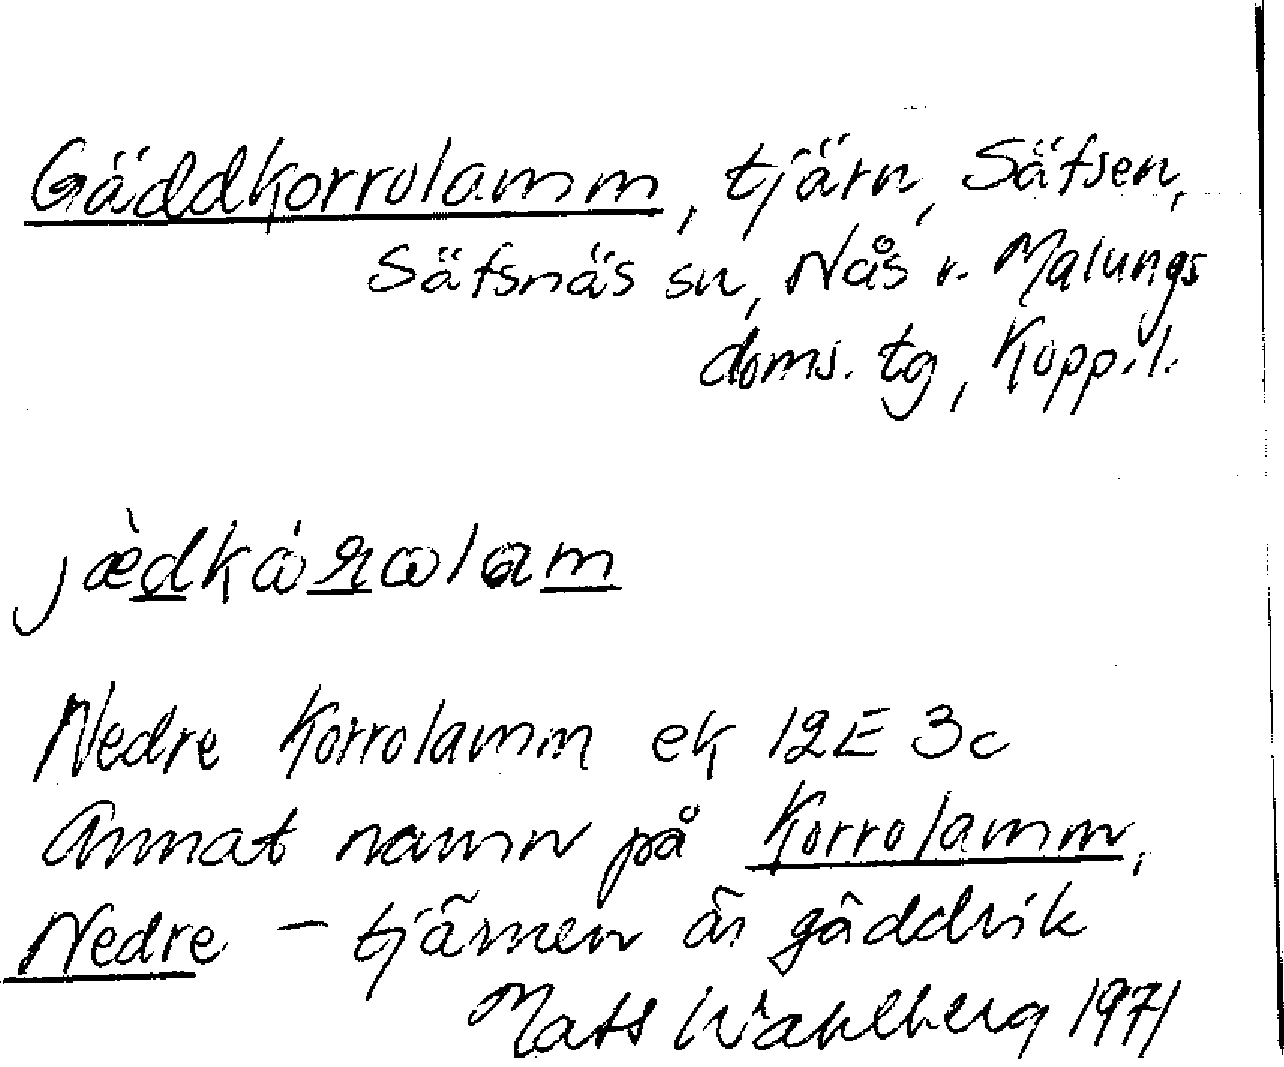 Gäddkorrolamm, tjärn, Säfsen,
Säfsnäs sn, Nås v. Malungs
doms. tg, Kopp. l.
jæ̀dkȧrωlam
Nedre Korrolamm ek 12E 3c
Annat namn på Korrolamm,
Nedre – tjärnen är gäddrik
Mats Wahlberg 1971